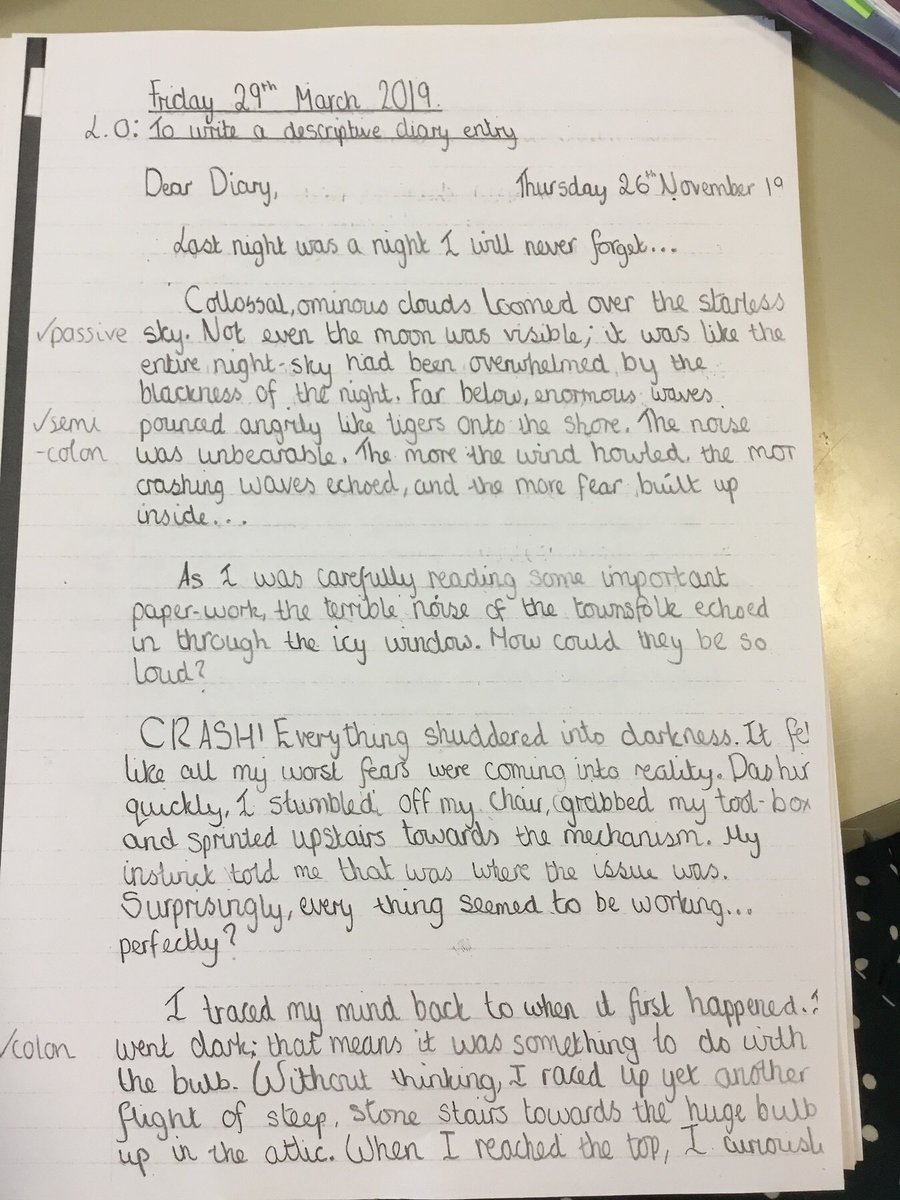 Friday 29th March 2019.
L.O: To write a descriptive diary entry
Dear Diary, Thursday 26th November 19
Last night was a night I will never forget...
Collossal, ominous clouds loomed over the starless
✓passive sky. Not even the moon was visible; it was like the
entire night-sky had been overwhelmed by the
blackness of the night. Far below, enormous waves
✓semi pounced angrily like tigers onto the shore. The noise
-colon was unbearable. The more the wind howled, the mor
crashing waves echoed, and the more fear built up
inside...
As I was carefully reading some important
paper-work, the terrible noise of the townsfolk echoed
in through the icy window. How could they be so
loud?
CRASH! Everything shuddered into darkness. It fel
like all my worst fears were coming into reality. Dashin
quickly, I stumbled off my chair, grabbed my tool-box
and sprinted upstairs towards the mechanism. My
told me that was where the issue was.
Surprisingly, every thing seemed to be working...
perfectly?
I traced my mind back to when it first happened.
✓colon went dark: that means it was something to do with
the bulb. Without thinking, I raced up yet another
flight of steep, stone stairs towards the huge bulb
up in the attic. When I reached the top, I curiousl